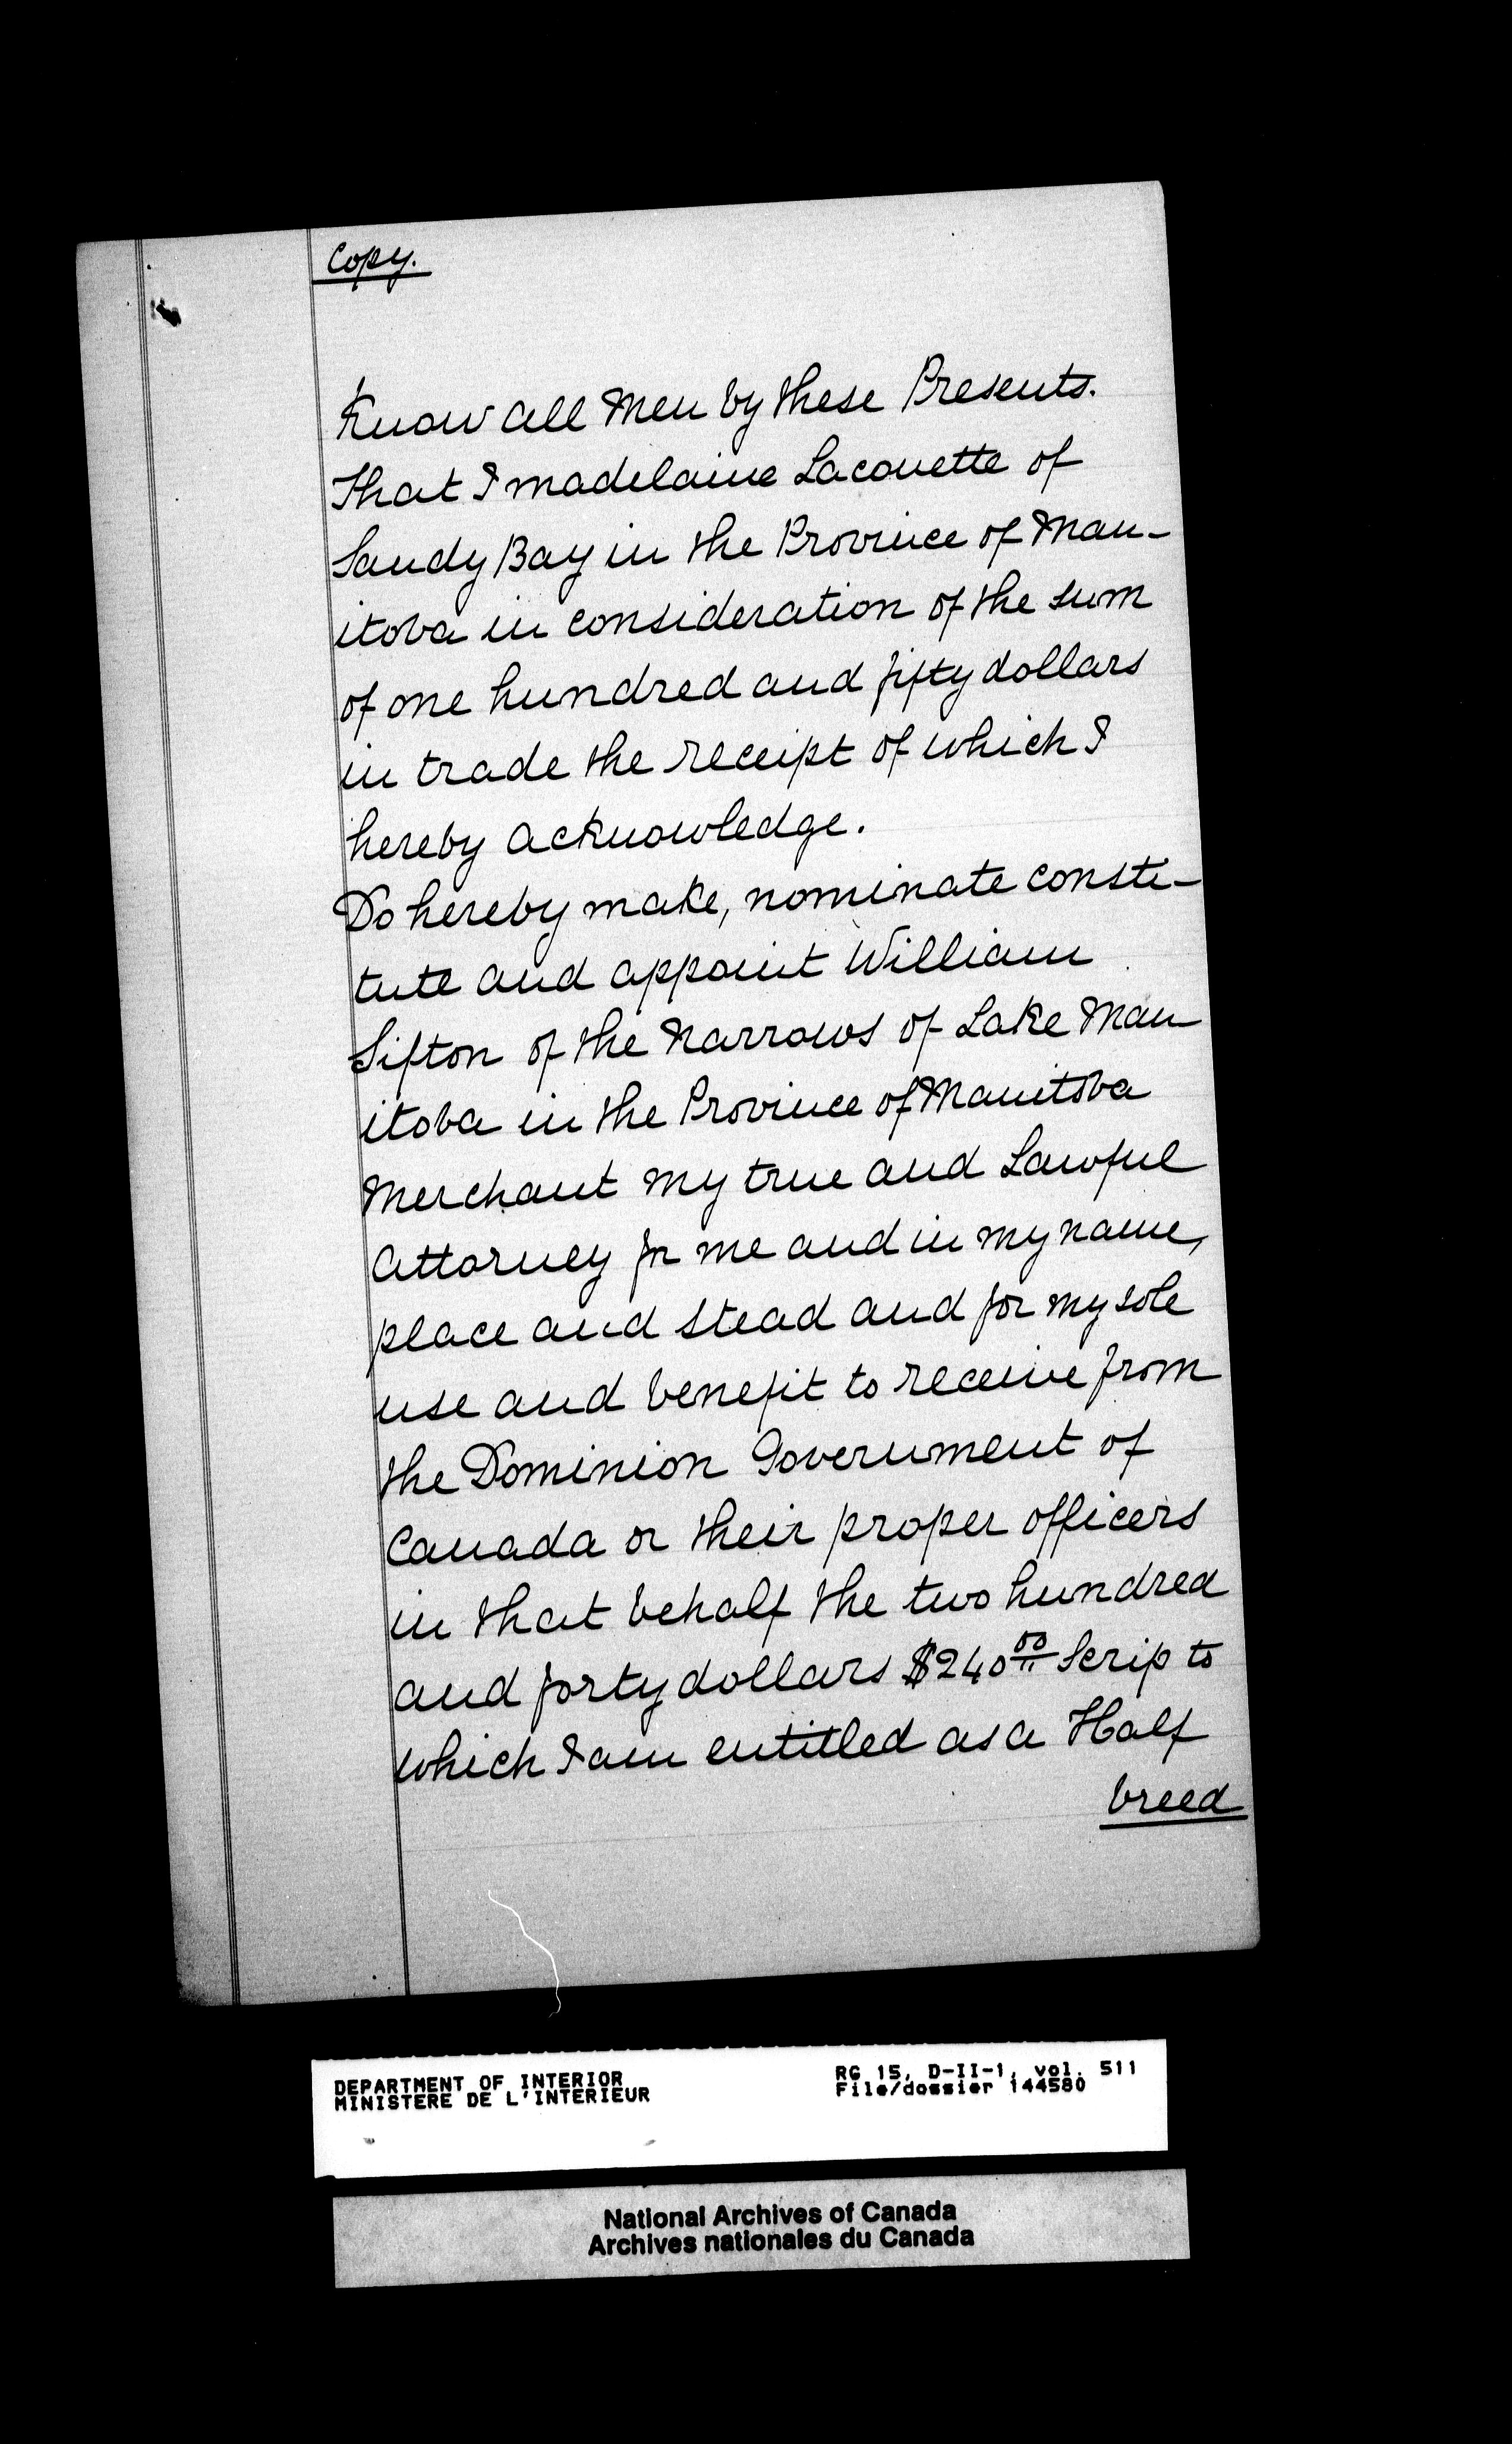 Copy.
Know all Men by these Presents.
That I Madelaine Lacouette of
Sandy Bay in the Province of Man-
itoba in consideration of the sum
of one hundred and fifty dollars
in trade the receipt of which I
hereby acknowledge.
Do hereby make, nominate consti-
tute and appoint William
Sifton of the Narrows of Lake Man-
itoba in the Province of Manitoba
Merchant my true and Lawful
Attorney for me and in my name,
place and stead and for my sole
use and benefit to receive from
the Dominion Government of
Canada or their proper officers
in that behalf the two hundred
and forty dollars $240 00 Scrip to
which I am entitled as a Half
breed
DEPARTMENT OF INTERIOR
MINISTERE DE L'INTERIEUR
RG 15, D-II-1, vol. 511
File/dossier 144580
National Archives of Canada
Archives nationales du Canada